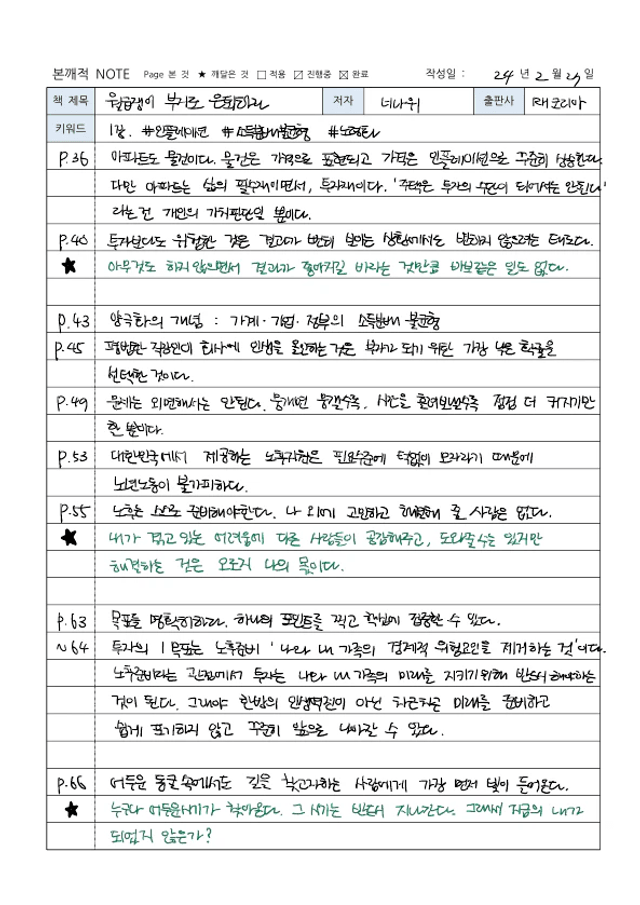 본깨적 NOTE Page 본 것 ★ 깨달은 것 □ 적용 ☑ 진행중 ☒ 완료 작성일 : 24 년 2 월 25 일
책 제목 월급쟁이 부자로 은퇴하라 저자 너나위 출판사 RH코리아
키워드 1장. #인플레이션 #소득분배불균형 #노후준비
p.36 아파트도 물건이다. 물건은 가격으로 표현되고 가격은 인플레이션으로 꾸준히 상승한다.
다만 아파트는 삶의 필수재이면서, 투자재이다. '주택은 투자의 수단이 되어서는 안된다'
라는건 개인의 가치판단일 뿐이다.
p.40 투자보다도 위험한 것은 결과가 뻔히 보이는 상황에서도 변하지 않으려는 태도다.
★ 아무것도 하지 않으면서 결과가 좋아지길 바라는 것만큼 바보같은 일도 없다.
p.43 양극화의 개념 : 가계·기업·정부의 소득분배 불균형
p.45 평범한 직장인이 회사에 인생을 올인하는 것은 부자가 되기 위한 가장 낮은 확률을
선택한 것이다.
p.49 문제는 외면해서는 안된다. 뭉개면 뭉갤수록, 시간을 흘려보낼수록 점점 더 커지기만
할 뿐이다.
p.53 대한민국에서 제공하는 노후지원은 필요수준에 턱없이 모자라기 때문에
노년노동이 불가피하다.
p.55 노후는 스스로 준비해야한다. 나 외에 고민하고 해결해 줄 사람은 없다.
★ 내가 겪고 있는 어려움에 다른 사람들이 공감해주고, 도와줄 수는 있지만
해결하는 것은 오로지 나의 몫이다.
p.63 목표를 명확히하라. 하나의 포인트를 찍고 확실히 집중할 수 있다.
~64 투자의 1 목표는 노후준비 '나와 내 가족의 경제적 위험요인을 제거하는 것'이다.
노후준비라는 관점에서 투자는 나와 내 가족의 미래를 지키기위해 반드시 해야하는
것이 된다. 그래야 한방의 인생역전이 아닌 차근차근 미래를 준비하고
쉽게 포기하지 않고 꾸준히 앞으로 나아갈 수 있다.
p.66 어두운 동굴속에서도 길을 찾고자하는 사람에게 가장 먼저 빛이 들어온다.
★ 누구나 어두운시기가 찾아온다. 그 시기는 반드시 지나간다. 그래서 지금의 내가
되었지 않은가?